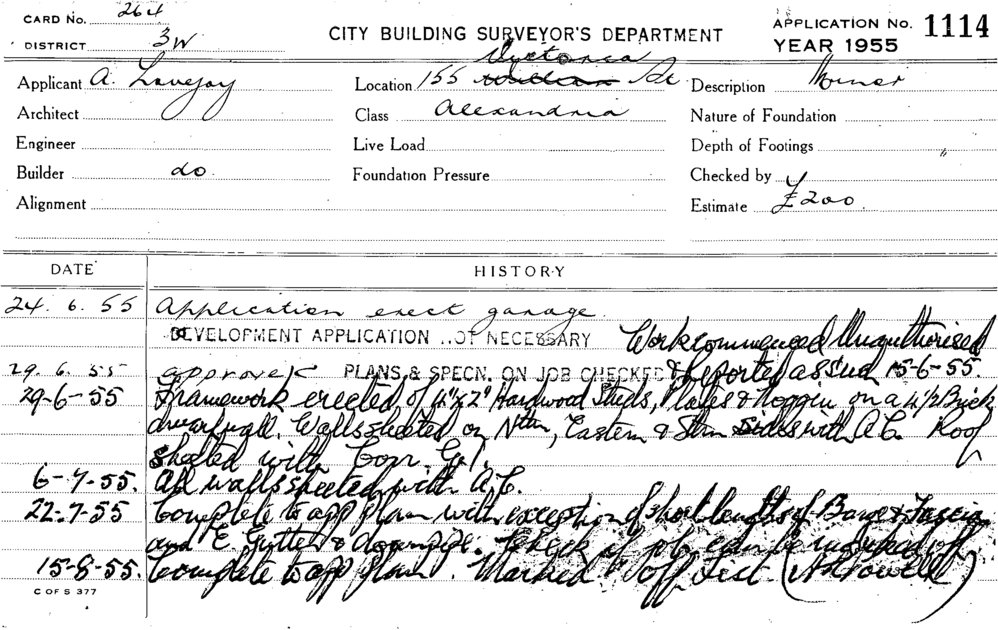 CARD No. 264
DISTRICT 3W
CITY BUILDING SURVEYOR'S DEPARTMENT
APPLICATION No. 1114
YEAR 1955
Applicant A. Lovejoy
Location 155 Victoria St
Description Minor
Architect
Class Alexandria
Nature of Foundation
Engineer
Live Load
Depth of Footings "
Builder do
Foundation Pressure
Checked by
Alignment
Estimate £200
DATE HISTORY
24. 6. 55 Application erect garage.
DEVELOPMENT APPLICATION ..OT NECESSARY Work commenced Unauthorised
& reported as such 15-6-55.
29. 6. 55 approved PLANS & SPECN. ON JOB CHECKED
29-6-55 Framework erected of 4"x2" Hardwood Studs, Plates & Noggin on a 4½ Brick
dwarf wall. Walls sheeted on Nthn, Eastern & Sthn sides with A.C. Roof
sheeted with Corr. G.I.
6-7-55. All walls sheeted with A.C.
22-7-55 Complete to app plan with exception of short lengths of Barge & Fascia
and E. Gutter & downpipe. Check if job can be marked off
15-8-55. Complete to app plan. Marked off List
C OF S 377